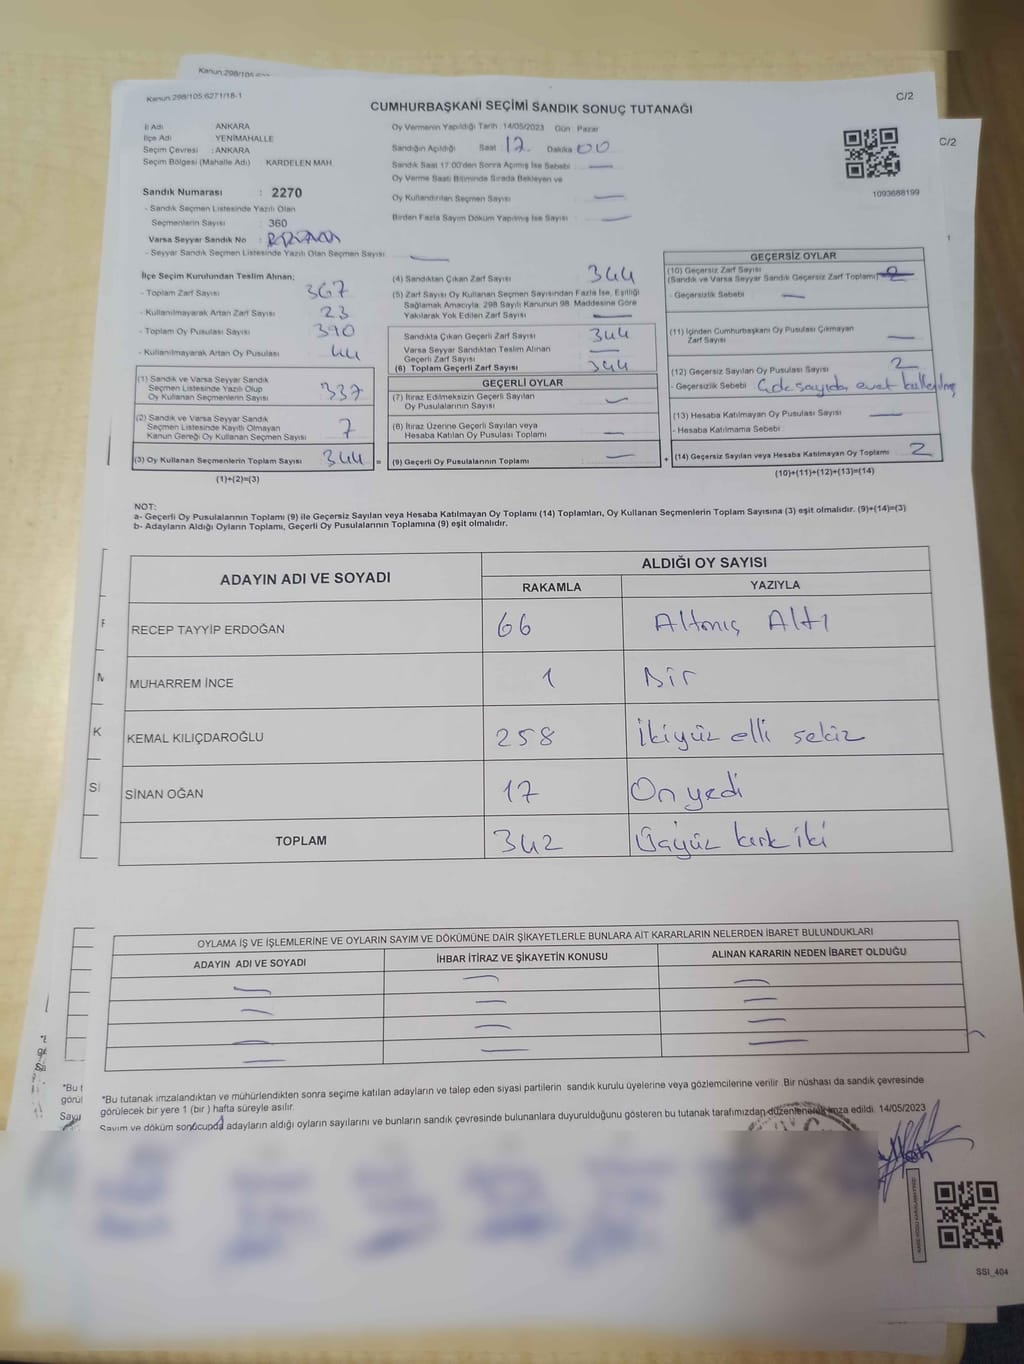 Kanun:298/105
Kanun:298/105;6271/18-1
C/2
C/2
CUMHURBAŞKANI SEÇİMİ SANDIK SONUÇ TUTANAĞI
İl Adı ANKARA
İlçe Adı YENİMAHALLE
Seçim Çevresi : ANKARA
Seçim Bölgesi (Mahalle Adı) : KARDELEN MAH
Sandık Numarası : 2270
- Sandık Seçmen Listesinde Yazılı Olan
Seçmenlerin Sayısı : 360
Varsa Seyyar Sandık No :
- Seyyar Sandık Seçmen Listesinde Yazılı Olan Seçmen Sayısı : —
Oy Vermenin Yapıldığı Tarih : 14/05/2023 Gün : Pazar
Sandığın Açıldığı Saat 17 Dakika 00
Sandık Saat 17:00'den Sonra Açılmış İse Sebebi : —
Oy Verme Saati Bitiminde Sırada Bekleyen ve
Oy Kullandırılan Seçmen Sayısı —
Birden Fazla Sayım Döküm Yapılmış İse Sayısı : —
1093688199
İlçe Seçim Kurulundan Teslim Alınan;
- Toplam Zarf Sayısı : 367
- Kullanılmayarak Artan Zarf Sayısı : 23
- Toplam Oy Pusulası Sayısı : 390
- Kullanılmayarak Artan Oy Pusulası 44
(1) Sandık ve Varsa Seyyar Sandık
Seçmen Listesinde Yazılı Olup
Oy Kullanan Seçmenlerin Sayısı 337
(2) Sandık ve Varsa Seyyar Sandık
Seçmen Listesinde Kayıtlı Olmayan
Kanun Gereği Oy Kullanan Seçmen Sayısı 7
(3) Oy Kullanan Seçmenlerin Toplam Sayısı 344 =
(1)+(2)=(3)
(4) Sandıktan Çıkan Zarf Sayısı 344
(5) Zarf Sayısı Oy Kullanan Seçmen Sayısından Fazla İse, Eşitliği
Sağlamak Amacıyla, 298 Sayılı Kanunun 98. Maddesine Göre
Yakılarak Yok Edilen Zarf Sayısı —
Sandıkta Çıkan Geçerli Zarf Sayısı 344
Varsa Seyyar Sandıktan Teslim Alınan
Geçerli Zarf Sayısı —
(6) Toplam Geçerli Zarf Sayısı 344
GEÇERLİ OYLAR
(7) İtiraz Edilmeksizin Geçerli Sayılan
Oy Pusulalarının Sayısı —
(8) İtiraz Üzerine Geçerli Sayılan veya
Hesaba Katılan Oy Pusulası Toplamı —
(9) Geçerli Oy Pusulalarının Toplamı — +
GEÇERSİZ OYLAR
(10) Geçersiz Zarf Sayısı
(Sandık ve Varsa Seyyar Sandık Geçersiz Zarf Toplamı)
- Geçersizlik Sebebi : —
(11) İçinden Cumhurbaşkanı Oy Pusulası Çıkmayan
Zarf Sayısı —
(12) Geçersiz Sayılan Oy Pusulası Sayısı 2
- Geçersizlik Sebebi
(13) Hesaba Katılmayan Oy Pusulası Sayısı —
- Hesaba Katılmama Sebebi
(14) Geçersiz Sayılan veya Hesaba Katılmayan Oy Toplamı 2
(10)+(11)+(12)+(13)=(14)
NOT:
a- Geçerli Oy Pusulalarının Toplamı (9) ile Geçersiz Sayılan veya Hesaba Katılmayan Oy Toplamı (14) Toplamları, Oy Kullanan Seçmenlerin Toplam Sayısına (3) eşit olmalıdır. (9)+(14)=(3)
b- Adayların Aldığı Oyların Toplamı, Geçerli Oy Pusulalarının Toplamına (9) eşit olmalıdır.
ADAYIN ADI VE SOYADI
ALDIĞI OY SAYISI
RAKAMLA YAZIYLA
RECEP TAYYİP ERDOĞAN 66 Altmış Altı
MUHARREM İNCE 1 Bir
KEMAL KILIÇDAROĞLU 258 İkiyüz elli sekiz
SİNAN OĞAN 17 On yedi
TOPLAM 342 Üçyüz kırk iki
OYLAMA İŞ VE İŞLEMLERİNE VE OYLARIN SAYIM VE DÖKÜMÜNE DAİR ŞİKAYETLERLE BUNLARA AİT KARARLARIN NELERDEN İBARET BULUNDUKLARI
ADAYIN ADI VE SOYADI İHBAR İTİRAZ VE ŞİKAYETİN KONUSU ALINAN KARARIN NEDEN İBARET OLDUĞU
— — —
— — —
— — —
— — —
*Bu tutanak imzalandıktan ve mühürlendikten sonra seçime katılan adayların ve talep eden siyasi partilerin sandık kurulu üyelerine veya gözlemcilerine verilir. Bir nüshası da sandık çevresinde
görülecek bir yere 1 (bir) hafta süreyle asılır.
Sayım ve döküm sonucunda adayların aldığı oyların sayılarını ve bunların sandık çevresinde bulunanlara duyurulduğunu gösteren bu tutanak tarafımızdan düzenlenerek imza edildi. 14/05/2023
SSI_404